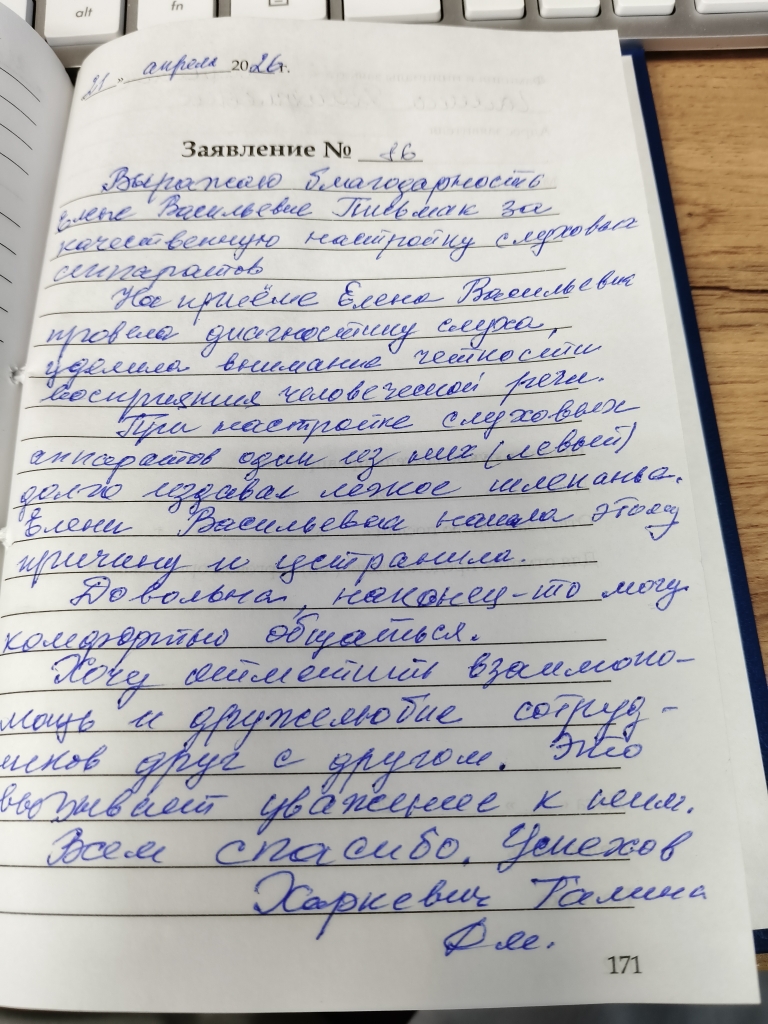 alt
fn
21 " апреля 2026г.
Заявление № 16
Выражаю благодарность
Елене Васильевне Письмак за
качественную настройку слуховых
аппаратов
На приёме Елена Васильевна
провела диагностику слуха,
уделила внимание четкости
восприятия человеческой речи.
При настройке слуховых
аппаратов один из них (левый)
долго издавал легкое шлепанье.
Елена Васильевна нашла этому
причину и устранила.
Довольна, наконец-то могу
комфортно общаться.
Хочу отметить взаимопо-
мощь и дружелюбие сотруд-
ников друг с другом. Это
вызывает уважение к ним.
Всем спасибо. Успехов
Харкевич Галина
171